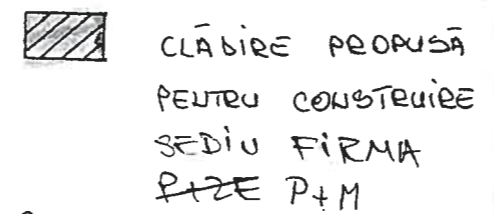 CLĂDIRE PROPUSĂ
PENTRU CONSTRUIRE
SEDIU FIRMA
P+2E P+M